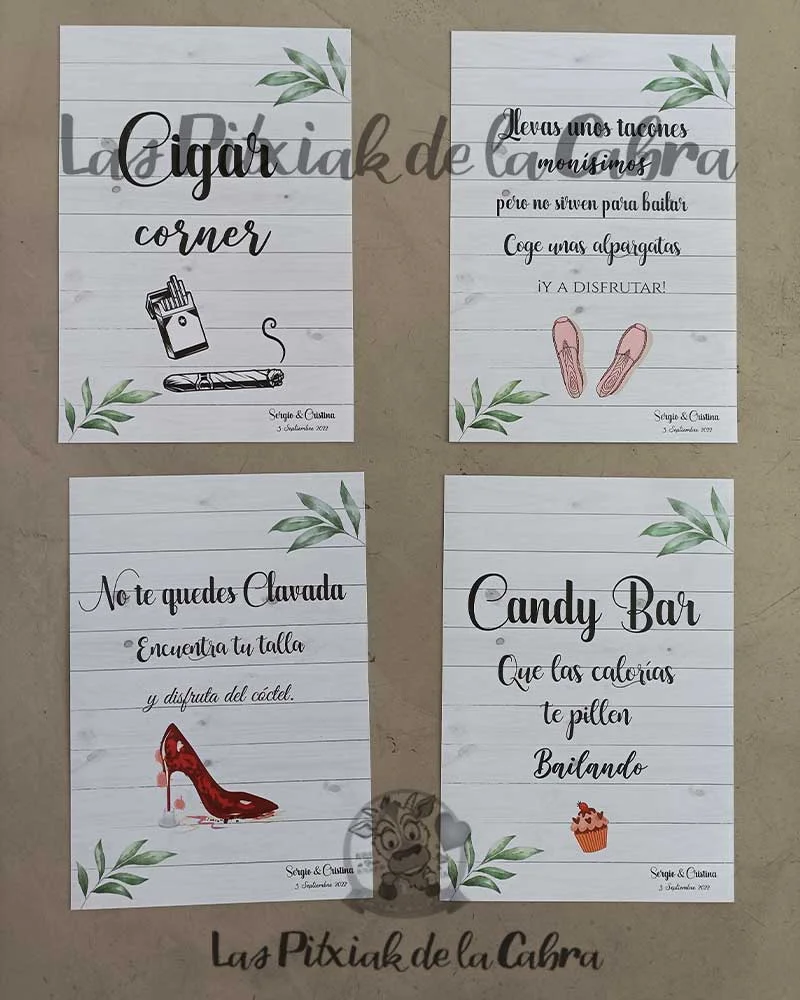 Las Pitxiak de la Cabra
Cigar
corner
Sergio & Cristina
3 Septiembre 2022
Llevas unos tacones
monísimos
pero no sirven para bailar
Coge unas alpargatas
¡Y A DISFRUTAR!
Sergio & Cristina
3 Septiembre 2022
No te quedes Clavada
Encuentra tu talla
y disfruta del cóctel.
Sergio & Cristina
3 Septiembre 2022
Candy Bar
Que las calorías
te pillen
Bailando
Sergio & Cristina
3 Septiembre 2022
Las Pitxiak de la Cabra